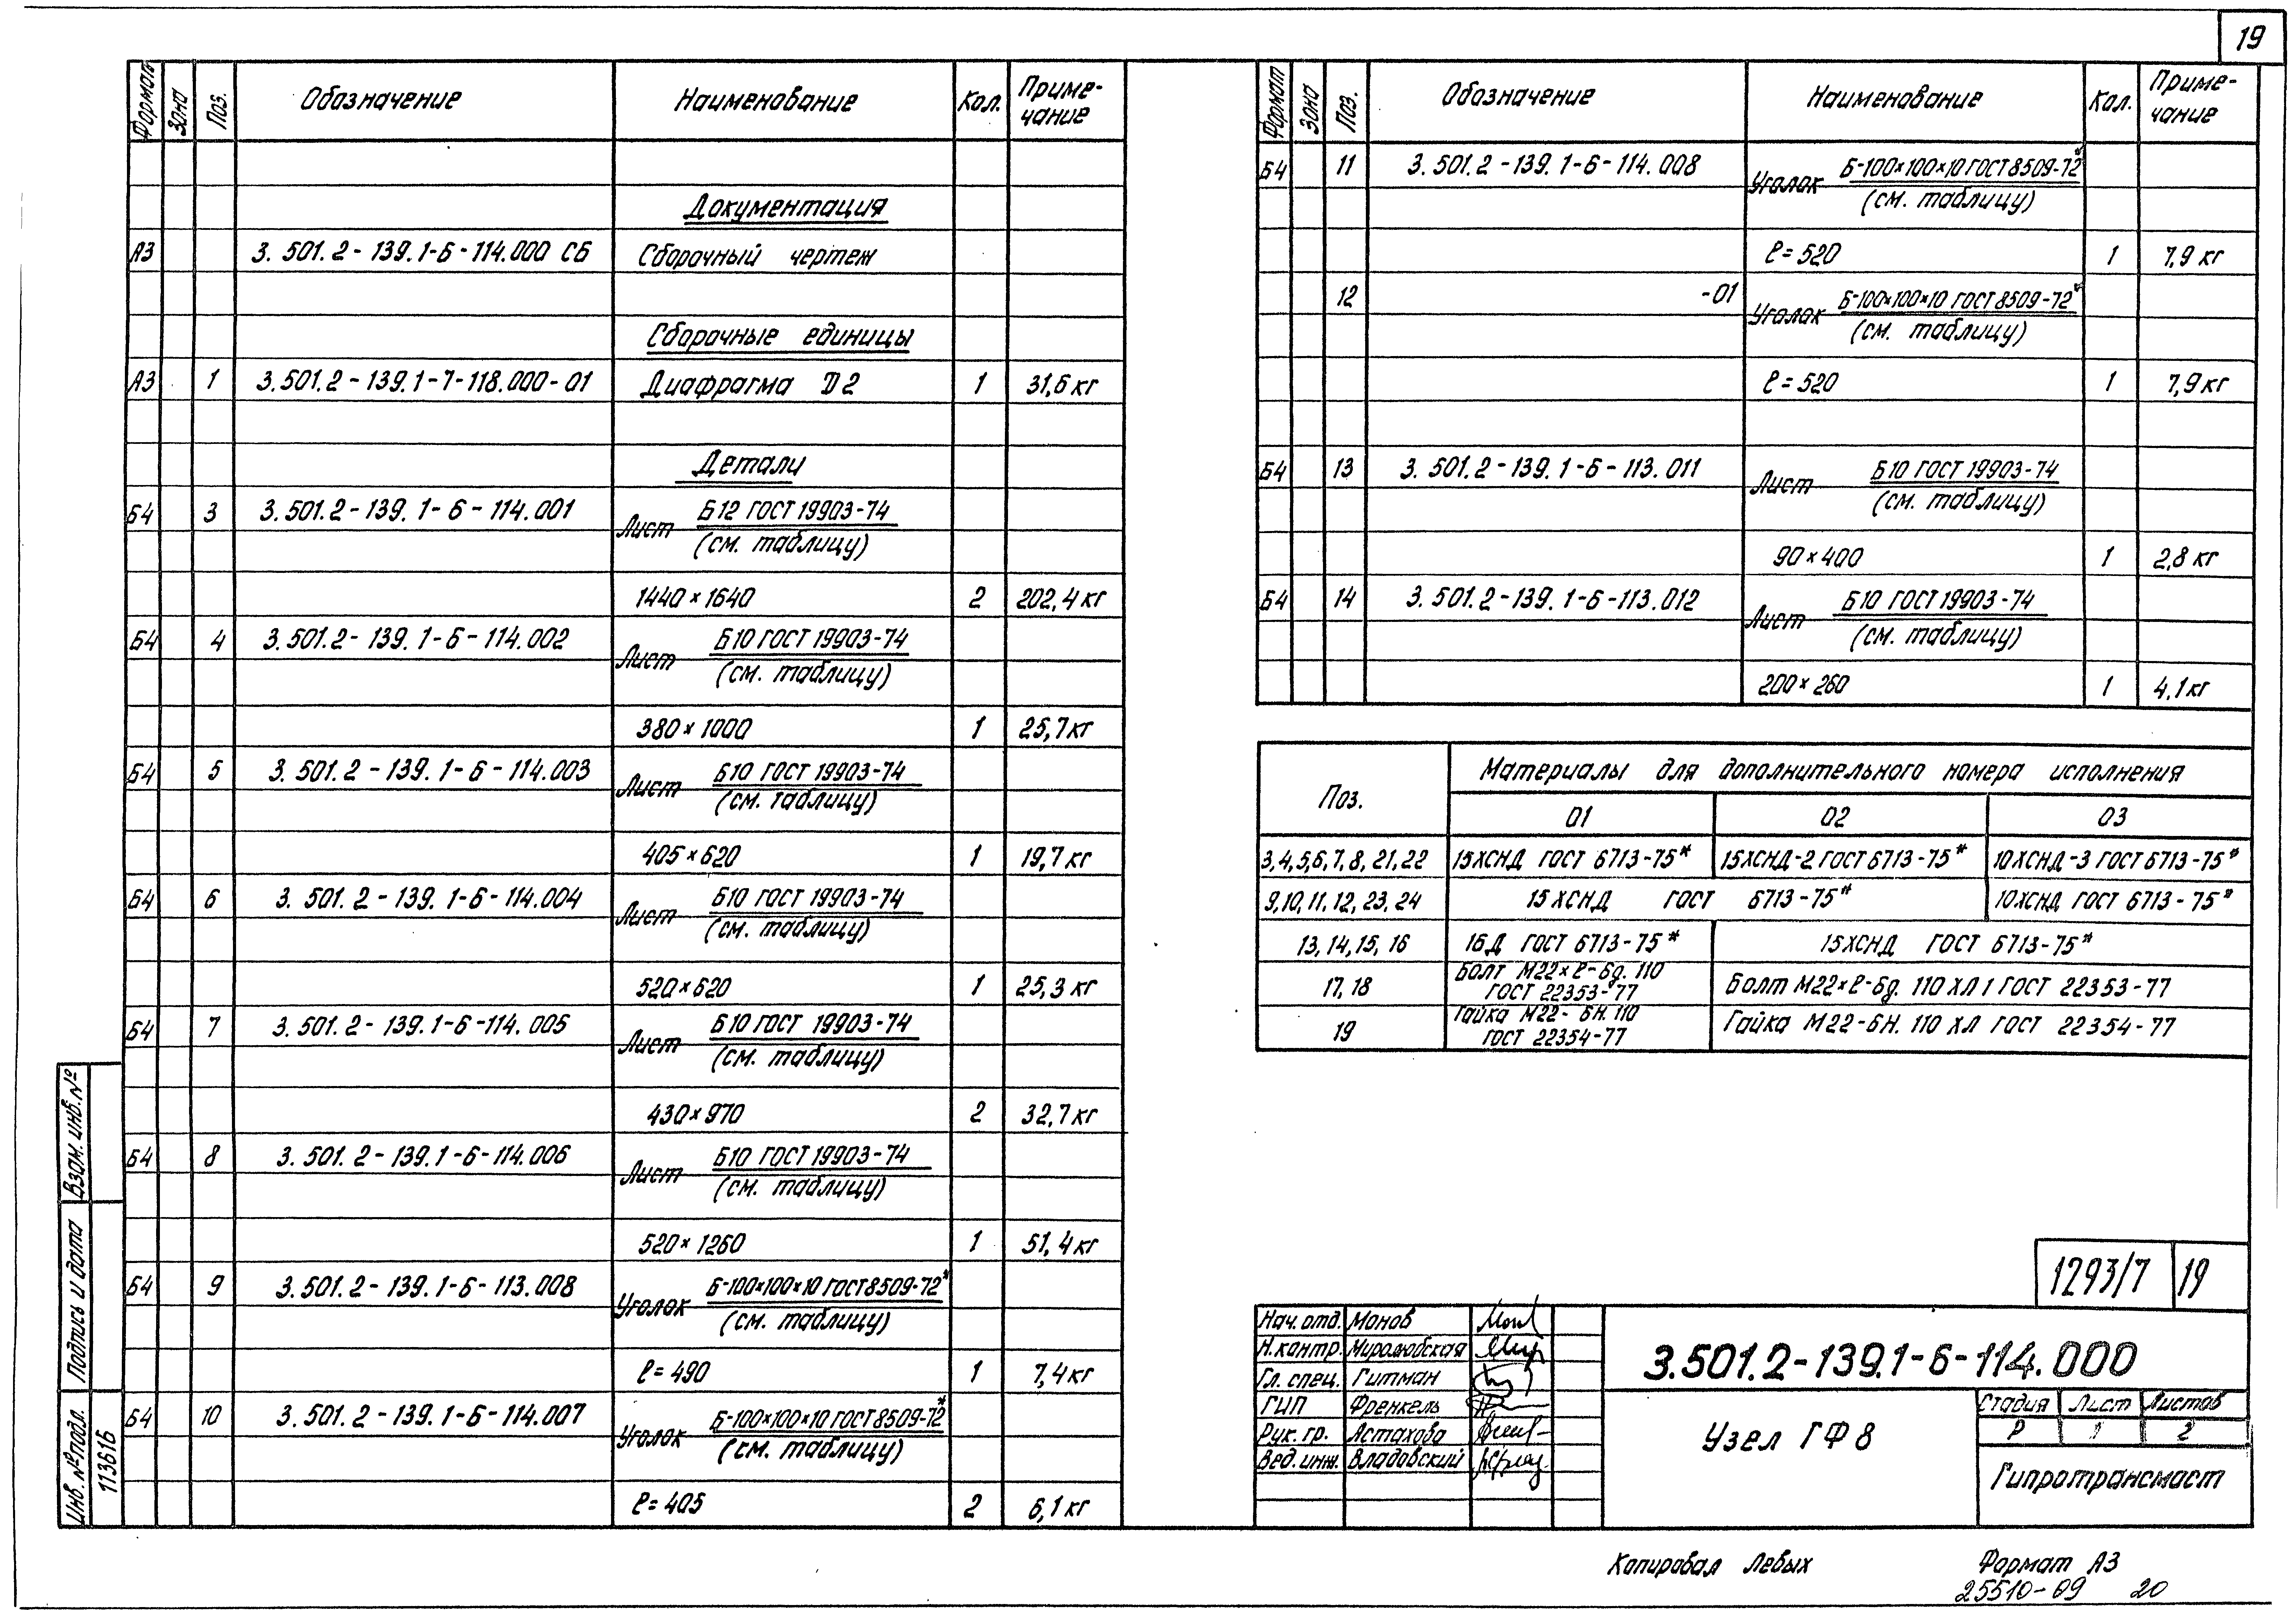 19
Формат Зона Поз. Обозначение Наименование Кол. Приме-чание
Документация
А3 3.501.2-139.1-6-114.000 СБ Сборочный чертеж
Сборочные единицы
А3 1 3.501.2-139.1-7-118.000-01 Диафрагма D2 1 31,6 кг
Детали
Б4 3 3.501.2-139.1-6-114.001 Лист Б12 ГОСТ 19903-74
(см. таблицу)
1440×1640 2 202,4 кг
Б4 4 3.501.2-139.1-6-114.002 Лист Б10 ГОСТ 19903-74
(см. таблицу)
380×1000 1 25,7 кг
Б4 5 3.501.2-139.1-6-114.003 Лист Б10 ГОСТ 19903-74
(см. таблицу)
405×620 1 19,7 кг
Б4 6 3.501.2-139.1-6-114.004 Лист Б10 ГОСТ 19903-74
(см. таблицу)
520×620 1 25,3 кг
Б4 7 3.501.2-139.1-6-114.005 Лист Б10 ГОСТ 19903-74
(см. таблицу)
430×970 2 32,7 кг
Б4 8 3.501.2-139.1-6-114.006 Лист Б10 ГОСТ 19903-74
(см. таблицу)
520×1260 1 51,4 кг
Б4 9 3.501.2-139.1-6-113.008 Уголок Б-100×100×10 ГОСТ 8509-72*
(см. таблицу)
ℓ=490 1 7,4 кг
Б4 10 3.501.2-139.1-6-114.007 Уголок Б-100×100×10 ГОСТ 8509-72*
(см. таблицу)
ℓ=405 2 6,1 кг
Формат Зона Поз. Обозначение Наименование Кол. Приме-чание
Б4 11 3.501.2-139.1-6-114.008 Уголок Б-100×100×10 ГОСТ 8509-72*
(см. таблицу)
ℓ=520 1 7,9 кг
12 -01 Уголок Б-100×100×10 ГОСТ 8509-72*
(см. таблицу)
ℓ=520 1 7,9 кг
Б4 13 3.501.2-139.1-6-113.011 Лист Б10 ГОСТ 19903-74
(см. таблицу)
90×400 1 2,8 кг
Б4 14 3.501.2-139.1-6-113.012 Лист Б10 ГОСТ 19903-74
(см. таблицу)
200×260 1 4,1 кг
Поз. Материалы для дополнительного номера исполнения
01 02 03
3,4,5,6,7,8,21,22 15ХСНД ГОСТ 6713-75* 15ХСНД-2 ГОСТ 6713-75* 10ХСНД-3 ГОСТ 6713-75*
9,10,11,12,23,24 15ХСНД ГОСТ 6713-75* 10ХСНД ГОСТ 6713-75*
13,14,15,16 16Д ГОСТ 6713-75* 15ХСНД ГОСТ 6713-75*
17,18 Болт М22×ℓ-6g.110 ГОСТ 22353-77 Болт М22×ℓ-6g.110 ХЛ1 ГОСТ 22353-77
19 Гайка М22-6Н.110 ГОСТ 22354-77 Гайка М22-6Н.110 ХЛ ГОСТ 22354-77
1293/7 19
Нач. отд. Монов
Н.контр. Миролюбская
Гл. спец. Гитман
ГИП Френкель
Рук. гр. Астахова
Вед. инж. Владовский
3.501.2-139.1-6-114.000
Узел ГФ8
Стадия Лист Листов
Р 1 2
Гипротрансмост
Взам. инв. №
Подпись и дата
Инв. № подл.
113616
Копировал Левых Формат А3
25510-09 20